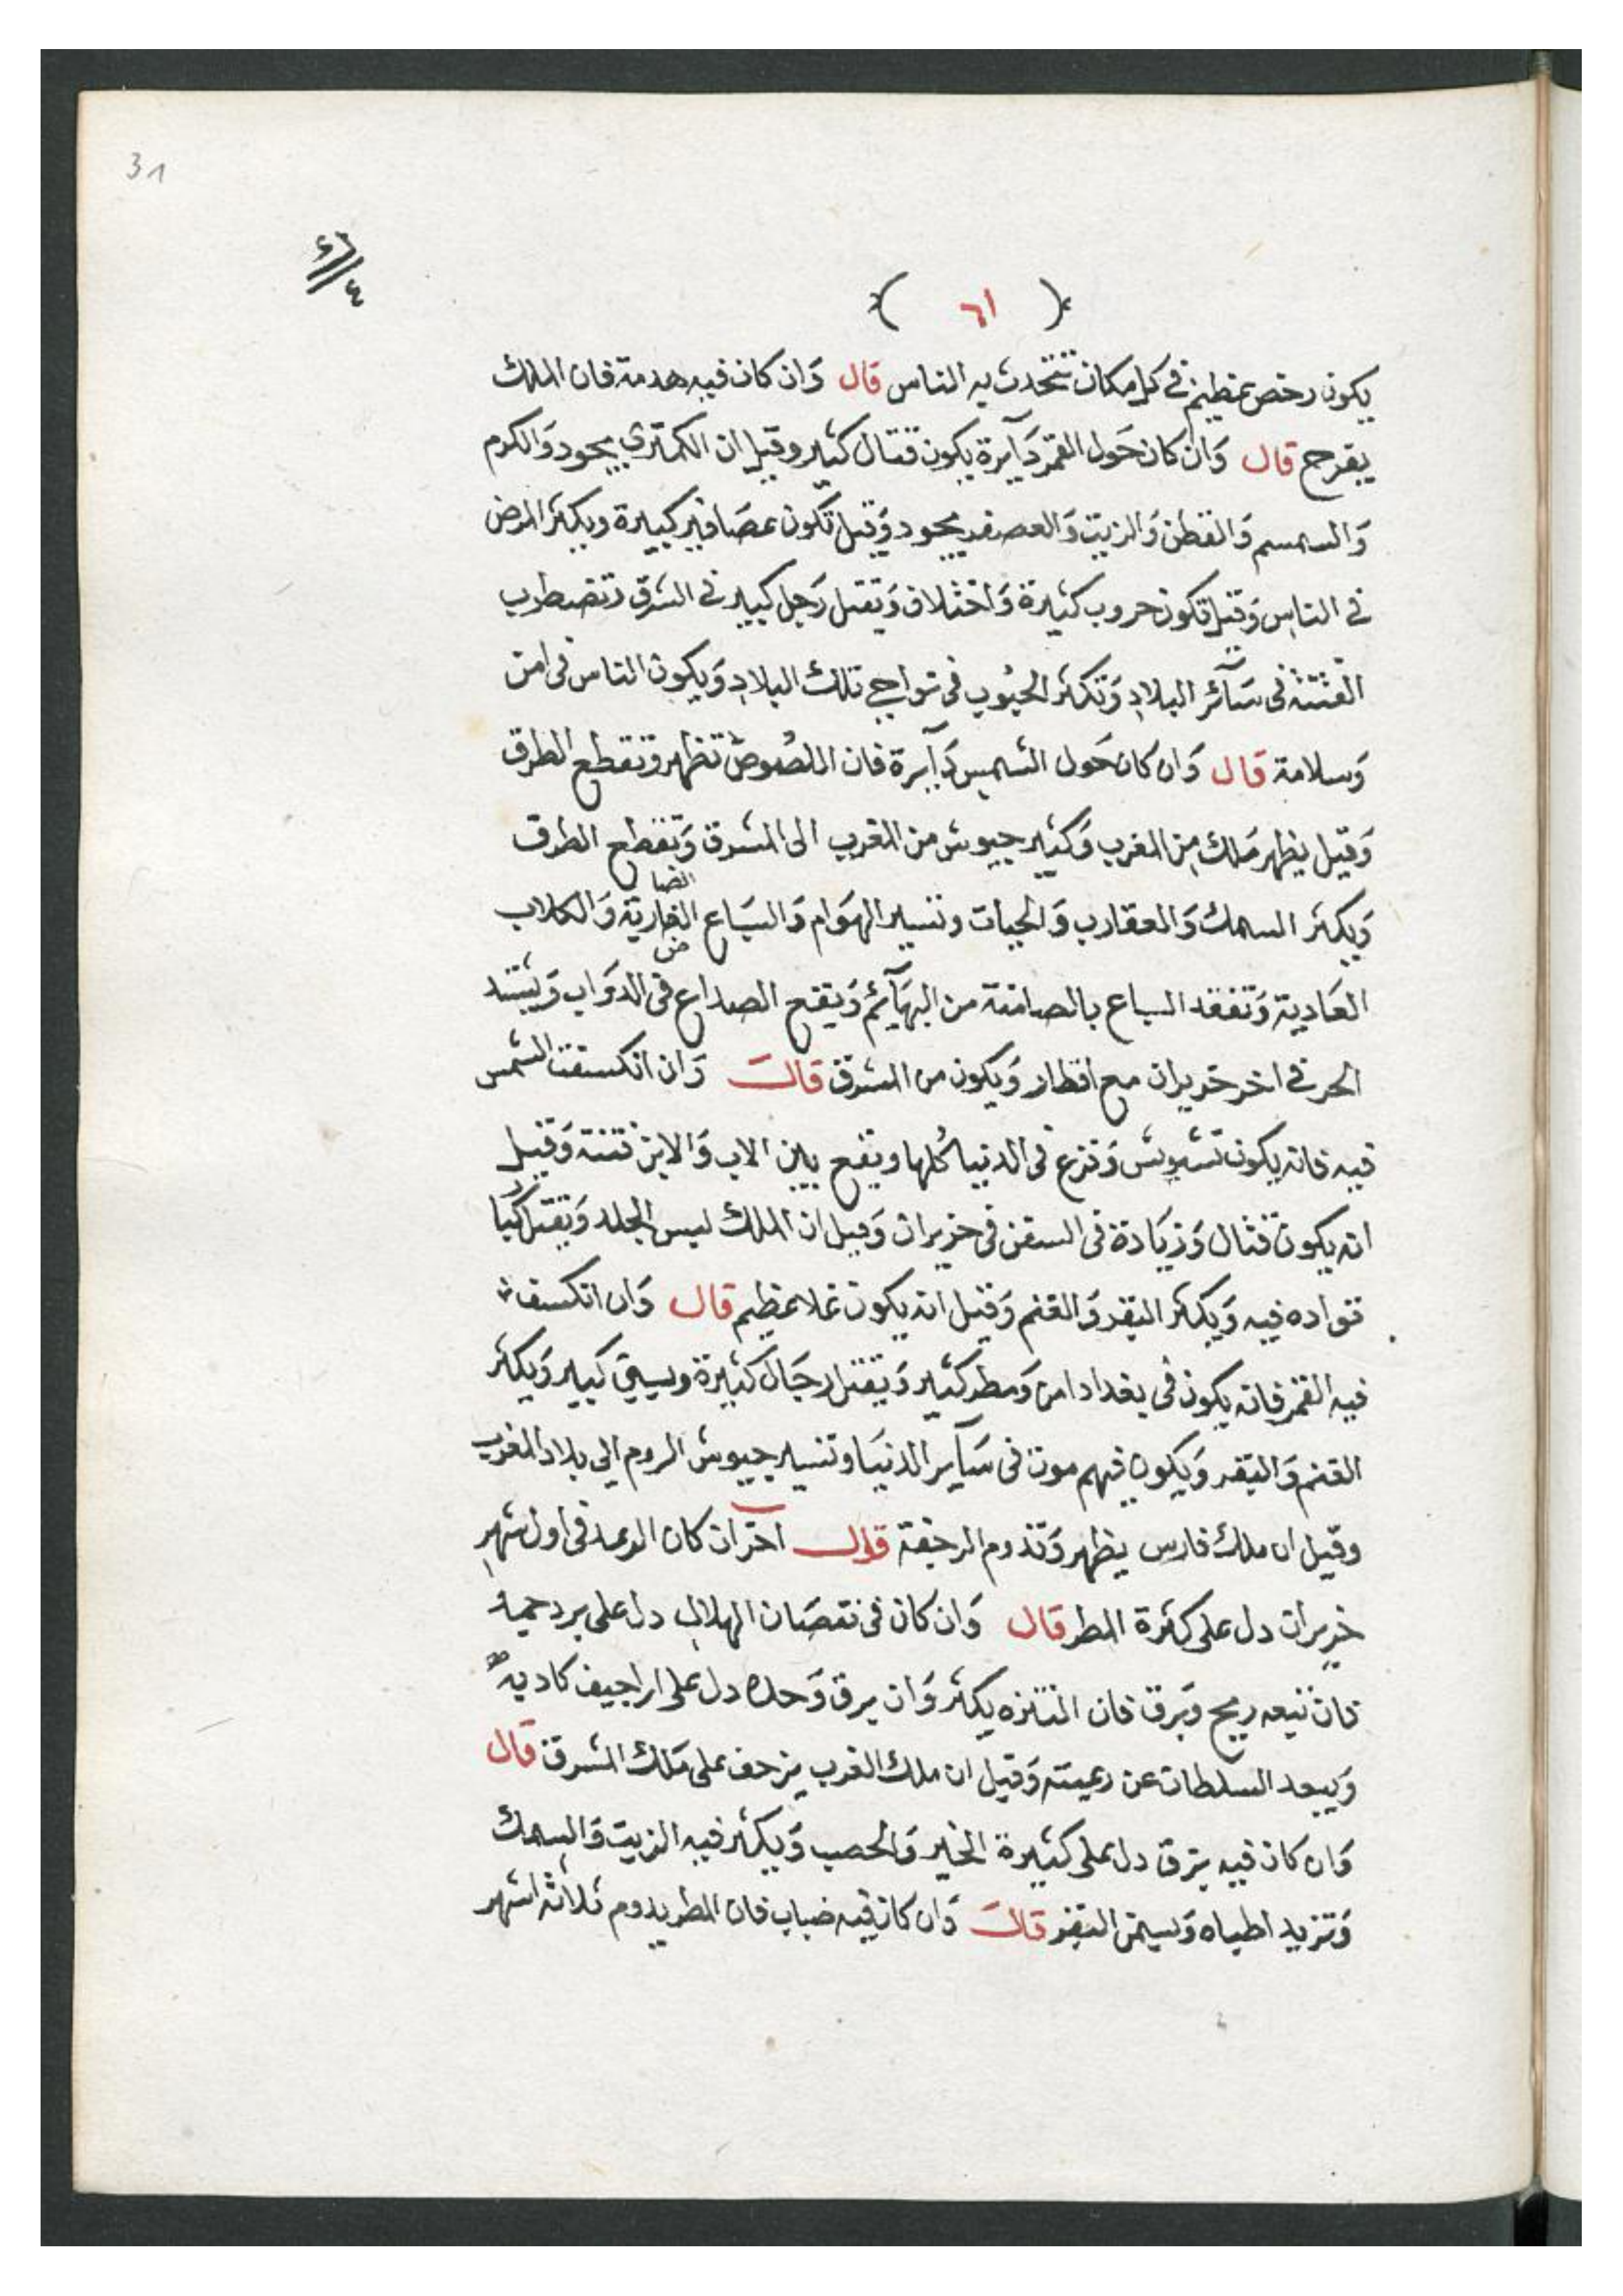 31
٤
( ٦١ )
يكون رخص عظيم في كل مكان تتحدث به الناس قال وَان كان فيه هدمة فان الملك
يفرح قال وَان كان حَول القمر دَآيرة يكون قتال كثير وقيل ان الكمثري يجود وَالكرم
وَالسمسم وَالقطن وَالزيت وَالعصفر يجود وَقيل تكون عصَافير كبيرة ويكثر المرض
في الناس وَقيل تكون حروب كثيرة وَاختلاف وَيقتل رَجل كبير في الشرق وتضطرب
الفتنة فى سَآئر البلاد وَتكثر الحبُوب فى نواحي تلك البلاد وَيكون الناس فى امن
وَسلامة قال وَان كان حَول الشمس دَآيرة فان اللصُوص تظهر وتقطع الطرق
وَقيل يظهر مَلك من المغرب وَكثير جيوش من الغرب الى المشرق وَتقطع الطرق
وَيكثر السمك وَالعقارب وَالحيات وتسير الهوَام وَالسبَاع الضارية وَالكلاب
العَادية وَتفقد السباع بالصامتة من البهَآئم وَيقع الصداع فى الدوَاب وَيشتد
الحر في اخر حزيران مع افطار وَيكون من المشرق قالَ وَان انكسفت الشمس
فيه فانه يكون تشويش وَفزع فى الدنيا كُلها ويقع بين الاب وَالابن فتنة وَقيل
انه يكون قتال وَزيَادة فى السفن فى حزيران وَقيل ان الملك لبس الجلد وَيقتل كبَار
قواده فيه وَيكثر البقر وَالغنم وَقيل انه يكون غلا عظيم قال وَان انكسف
فيه القمر فانه يكون في بغداد امن وَمطر كثير وَيقتل رجَال كثيرة وسبي كبير وَيكثر
الغنم وَالبقر وَيكون فيهم موت فى سَآير الدنيَا وتسير جيوش الروم الي بلاد المغرب
وقيل ان ملك فارس يظهر وَتدوم الرجفة قال آخر ان كان الرعد فى اول شهر
حزيران دل على كثرة المطر قال وَان كان فى نقصَان الهلال دل على برد
فان تبعه ريح وَبرق فان التنزه يكثر وَان برق وَحده دل على اراجيف كاذبة
وَيبعد السلطان عن رعيته وَقيل ان ملك الغرب يزحف على مَلك المشرق قال
وَان كان فيه برق دل على كثيرة الخير وَالخصب وَيكثر فيه الزيت وَالسمك
وَتزيد المياه وَيسمن البقر قالَ وَان كان فيه ضباب فان المطر يدوم ثلاثة اشهر